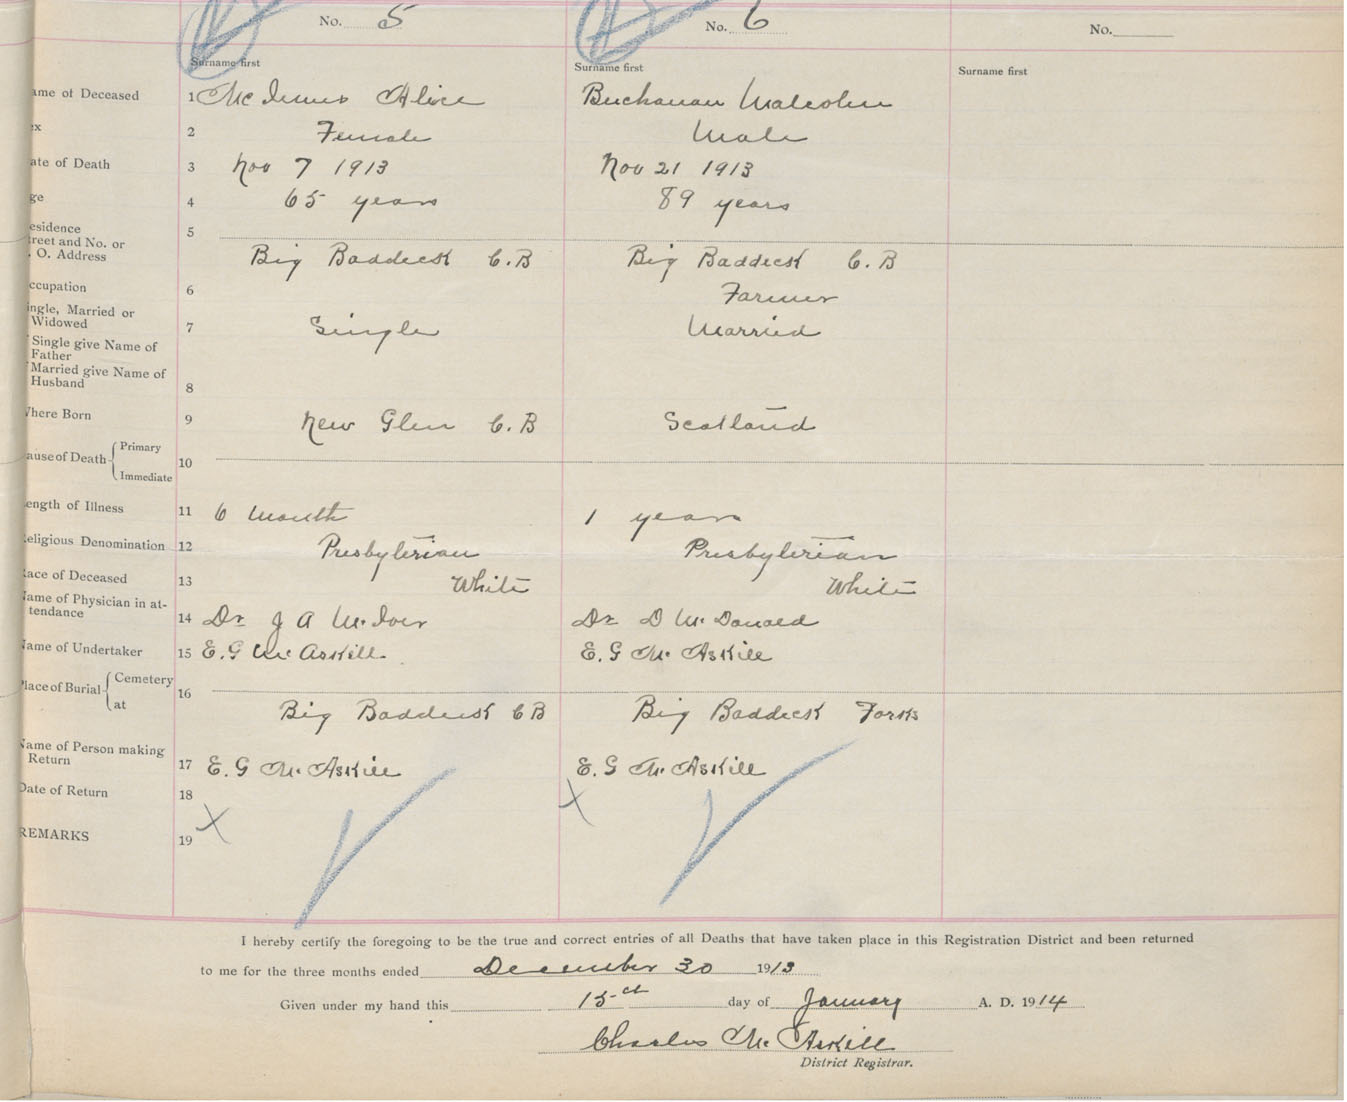 No. 5 No. 6 No.
Surname first Surname first Surname first
ame of Deceased 1 McInnis Alice Buchanan Malcolm
ex 2 Female Male
ate of Death 3 Nov 7 1913 Nov 21 1913
ge 4 65 years 89 years
esidence 5
treet and No. or
. O. Address Big Baddeck C.B Big Baddeck C.B
ccupation 6 Farmer
ingle, Married or
Widowed 7 Single Married
Single give Name of
Father
Married give Name of
Husband 8
here Born 9 New Glen C.B Scotland
ause of Death Primary
Immediate 10
ength of Illness 11 6 month 1 year
eligious Denomination 12 Presbyterian Presbyterian
ace of Deceased 13 White White
ame of Physician in at-
tendance 14 Dr J A McIver Dr D McDonald
ame of Undertaker 15 E.G McAskill E.G McAskill
lace of Burial Cemetery 16
at Big Baddeck CB Big Baddeck Forks
ame of Person making
Return 17 E.G McAskill E.G McAskill
Date of Return 18
REMARKS 19 X X
I hereby certify the foregoing to be the true and correct entries of all Deaths that have taken place in this Registration District and been returned
to me for the three months ended December 30 1913
Given under my hand this 15th day of January A. D. 1914
Charles McAskill
District Registrar.